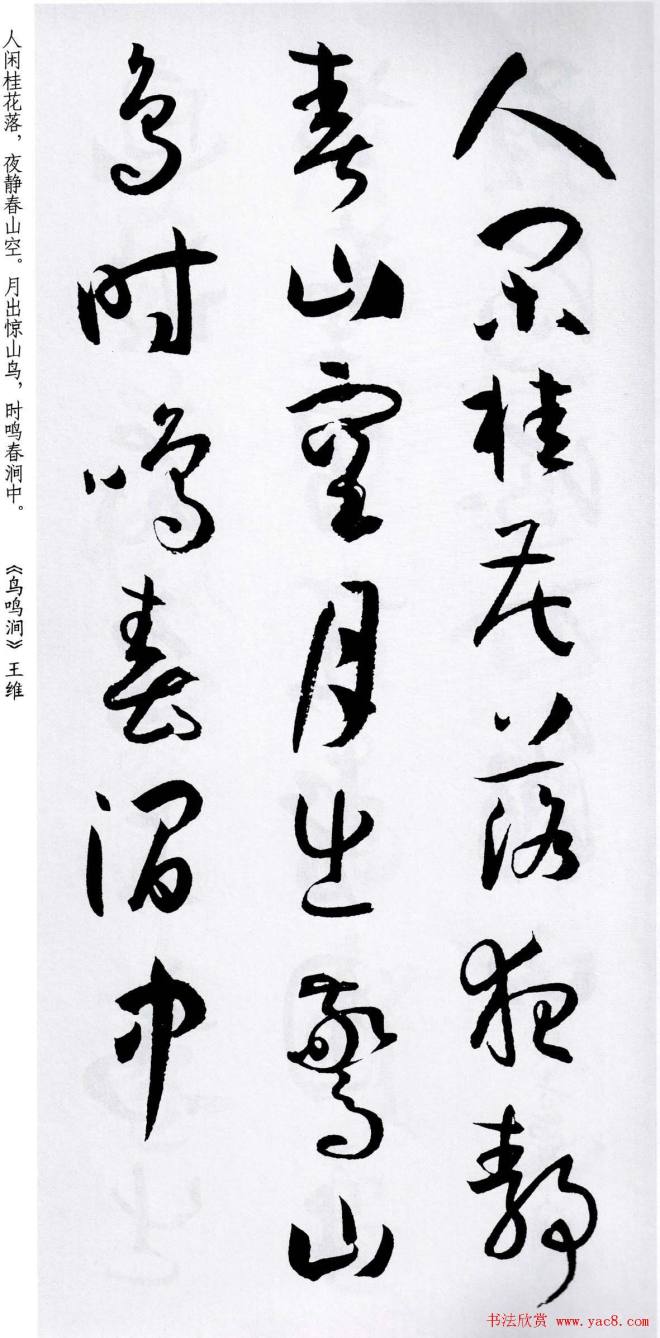 人闲桂花落夜静
春山空月出惊山
鸟时鸣春涧中
人闲桂花落，夜静春山空。月出惊山鸟，时鸣春涧中。　《鸟鸣涧》王维
书法欣赏 www.yac8.com